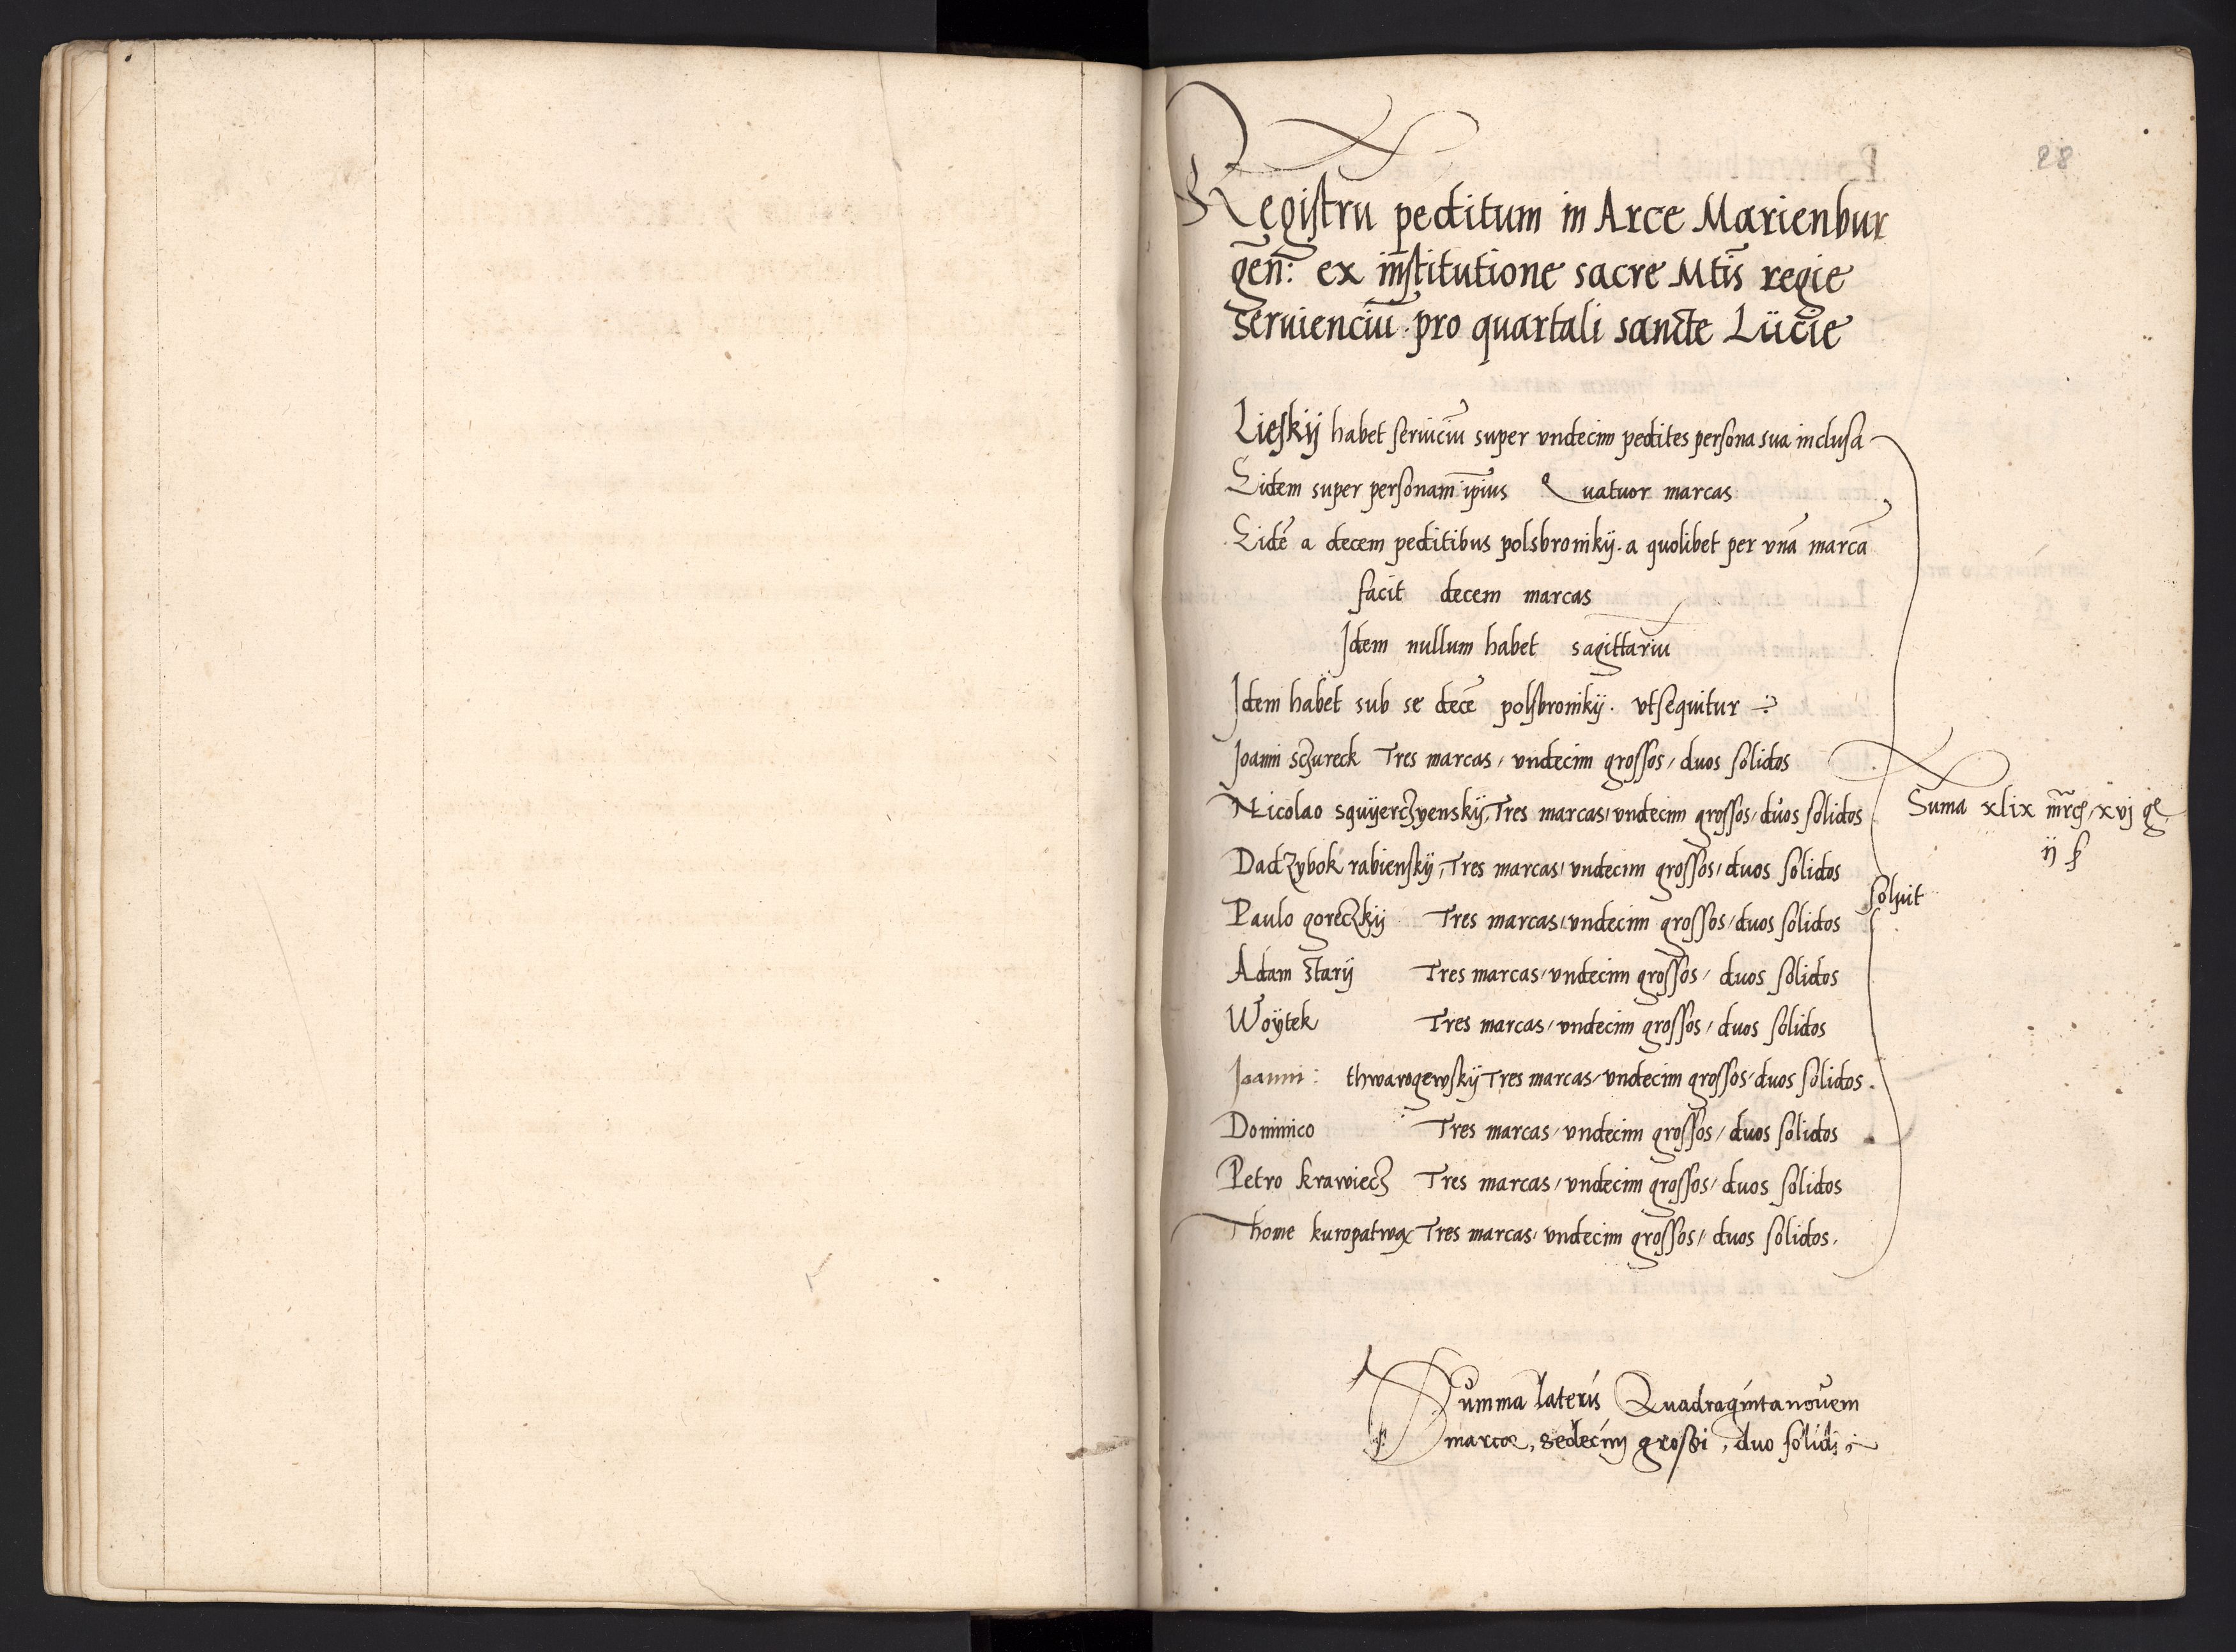 28
Registru peditum in Arce Marienbur
gen̄: ex institutione sacre Mtis̄ regie
seruienciū pro quartali sancte Lucie
Lieskij habet seruiciu super vndecim pedites persona sua inclusa
Eidem super personam ip̄ius Quatuor marcas
Eidē a decem peditibus polsbronikij. a quolibet per vnā marcā
facit decem marcas
Idem nullum habet sagittariu
Idem habet sub se decē polsbronikij. vt sequitur
Joanni sczureck Tres marcas / vndecim grossos / duos solidos
Nicolao sguÿerczyenskij, Tres marcas / vndecim grossos / duos solidos
Suma xlix mrc̄ / xvj g
ij ß
Dadzybok rabienskij, Tres marcas / vndecim grossos / duos solidos
soluit
Paulo goreczkij Tres marcas / vndecim grossos / duos solidos
Adam starÿ Tres marcas / vndecim grossos / duos solidos
Woÿtek Tres marcas / vndecim grossos / duos solidos
Joanni: thwarogewskij Tres marcas / vndecim grossos / duos solidos.
Dominico Tres marcas / vndecim grossos / duos solidos
Petro krawiecz Tres marcas / vndecim grossos / duos solidos
Thome kuropatwa Tres marcas / vndecim grossos / duos solidos.
Summa lateris Quadragintanouem
marcæ, sedecim grossi, duo solidi